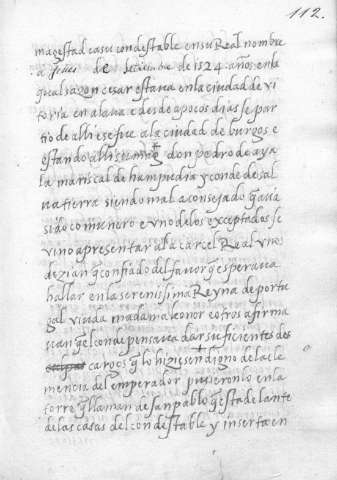 112.
magestad casu condestable en su Real nombre
a Jueves de setiembre de 1524 años en la
qual sazon cesar estaua en la ciudad de vi
toria en alaua e desde a pocos dias se par
tio de alli e se fue a la ciudad de burgos e
estando alli su mag don pedro de aya
la mariscal de hampudia y conde de sal
uatierra siendo mal aconsejado q auia
sido comunero e vno de los exceptados se
vino a presentar a la carcel Real vnos
dezian q confiado del fauor q esperaua
hallar en la serenissima Reyna de portu
gal viuda madama leonor e otros afirma
uan q el conde pensaua dar suficientes des
cargos q lo hiziesen digno de la cle
mencia del emperador pusieronlo en la
torre q llaman de san pablo q esta delante
de las casas del condestable y inserta en